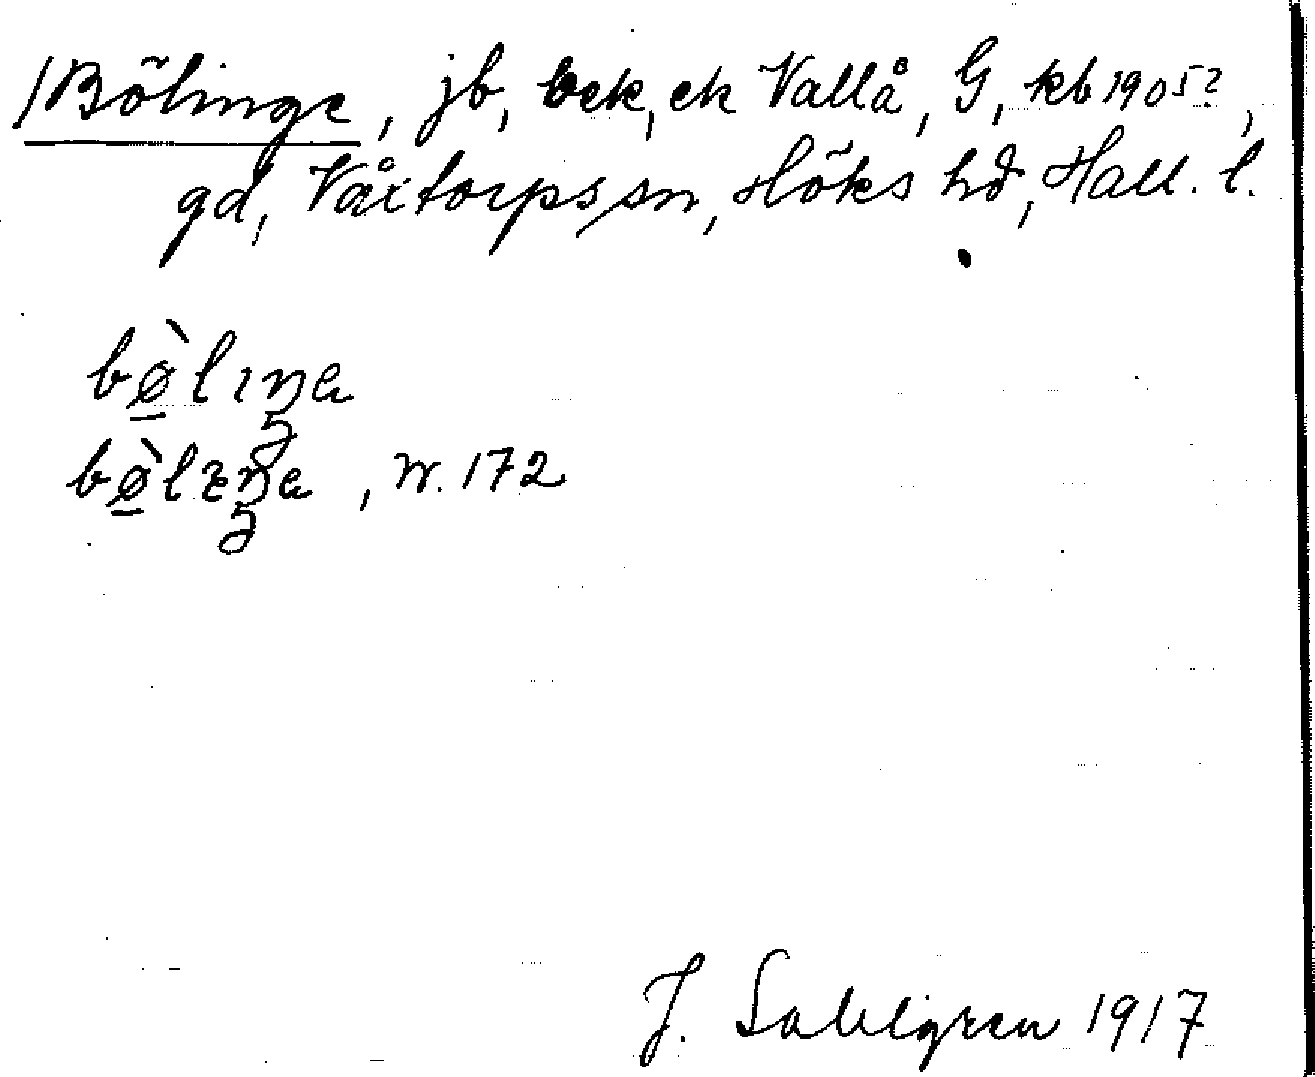 /Bölinge, jb, eek, ek Vallå, G, kb 1905?,
gd, Våxtorps sn, Höks hd, Hall. l.
bø̲̀lıŋa
bø̲̀lɛŋa, N. 172
J. Sahlgren 1917